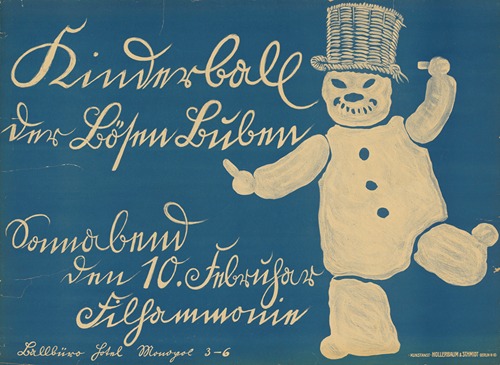 Kinderball
der Bösen Buben
Sonnabend
den 10. Februhar
Filhammonie
Ballbüro Hotel Monopol 3–6
KUNSTANST. HOLLERBAUM & SCHMIDT BERLIN N 65